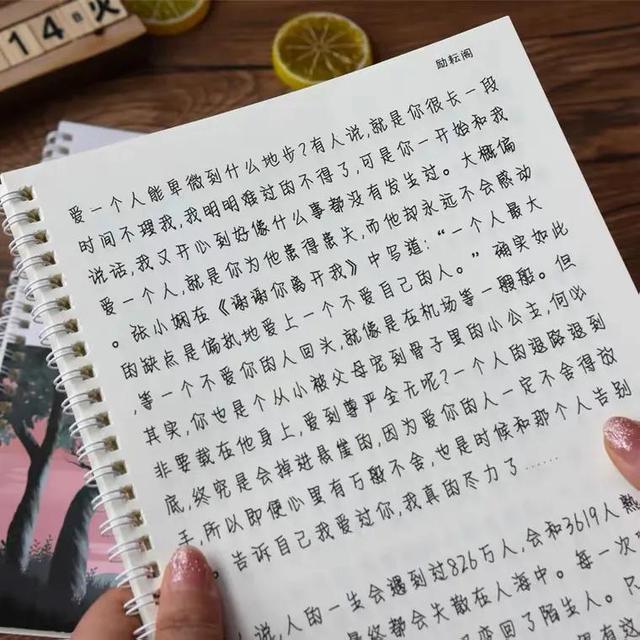 14 火
励耘阁
爱一个人能卑微到什么地步?有人说,就是你很长一段
时间不理我,我明明难过的不得了,可是你一开始和我
说话,我又开心到好像什么事都没有发生过。大概偏
爱一个人,就是你为他患得患失,而他却永远不会感动
。张小娴在《谢谢你离开我》中写道:“一个人最大
的缺点是偏执地爱上一个不爱自己的人。”确实如此
,等一个不爱你的人回头,就像是在机场等一艘船。但
其实,你也是个从小被父母宠到骨子里的小公主,何必
非要栽在他身上,爱到尊严全无呢?一个人的退除退到
底,终究是会掉进悬崖的,因为爱你的人一定不舍得放
手,所以即便心里有万般不舍,也是时候和那个人告别
。告诉自己我爱过你,我真的尽力了……
说,人的一生会遇到过826万人,会和3619人熟
最终都会失散在人海中。每一次
变回了陌生人。